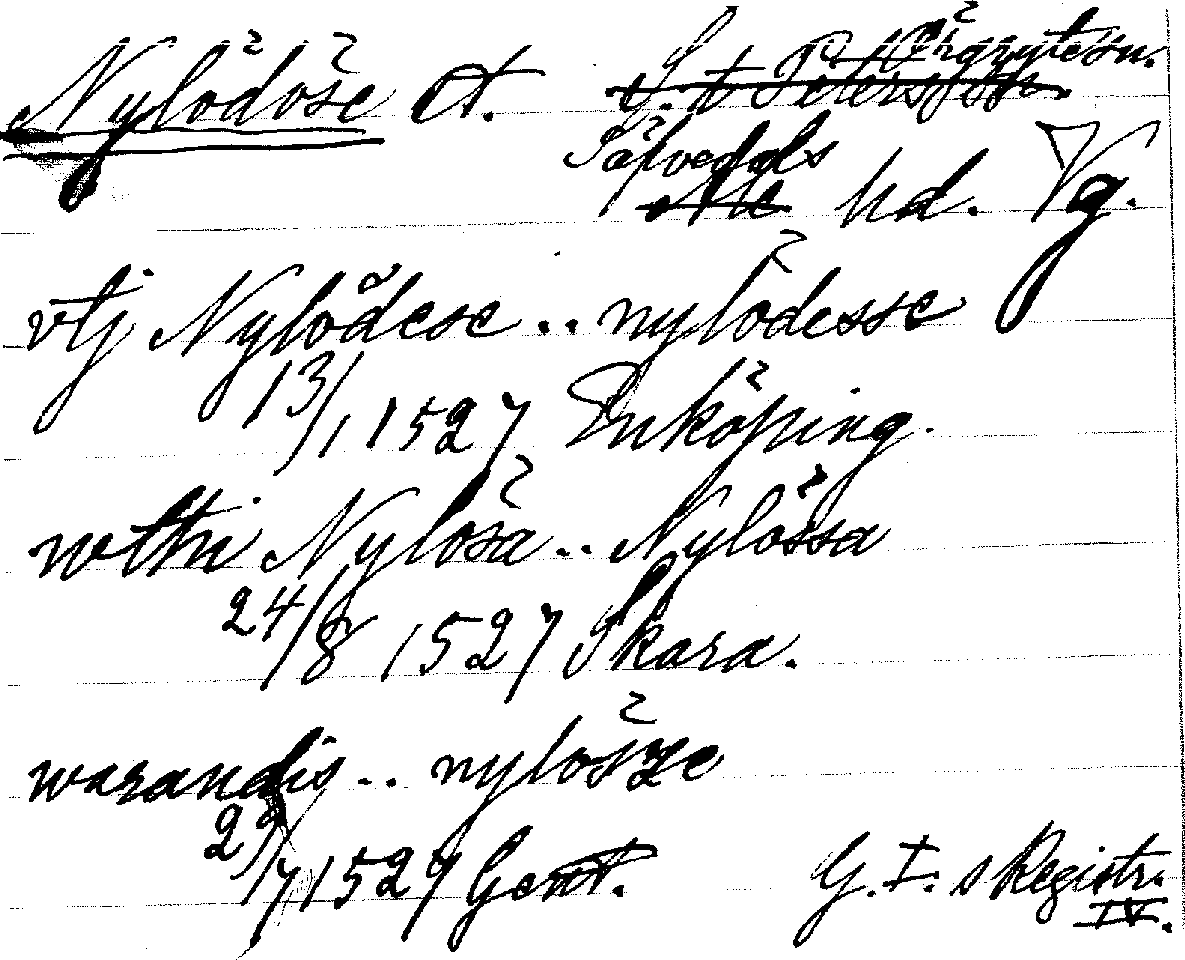 Nylödöse St. Örgrytesn.
S:t Petersförs.
Säfvedals
Ale hd. Vg.
vtj Nylödese .. nylödesse
13/1 1527 Enköping.
wthi Nylösa .. Nylössa
24/8 1527 Skara.
warandis .. nylösze
29/7 1527 Gent.
G. I:s Registr.
IV.